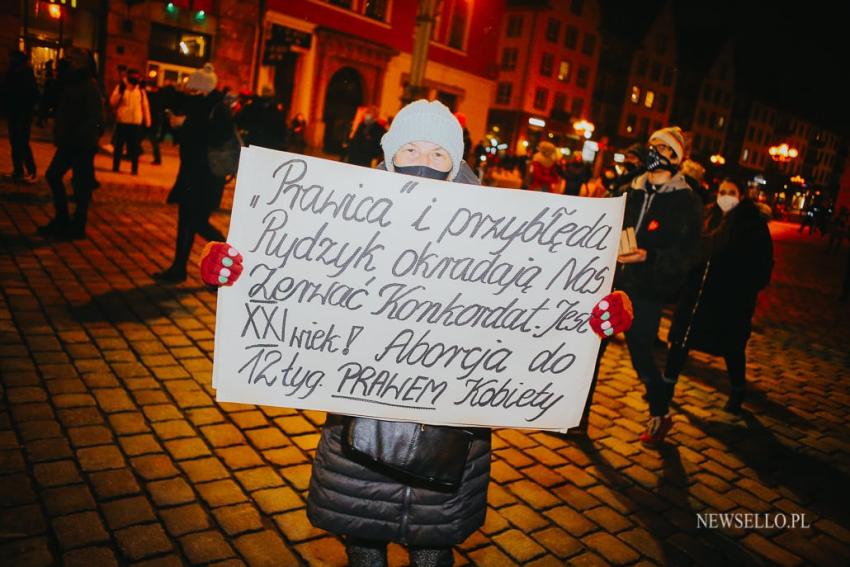 „Prawica” i przybłęda
Rydzyk okradają Nas
Zerwać Konkordat. Jest
XXI wiek! Aborcja do
12 tyg. PRAWEM Kobiety
NEWSELLO.PL